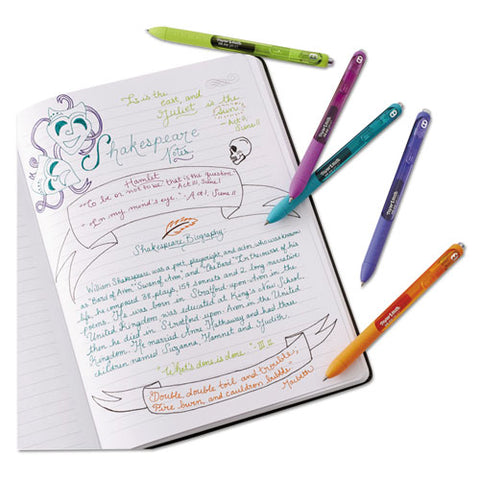 'Tis is the
east, and
Juliet is the
Sun.
- Act II,
Scene II
Shakespeare
Notes
Hamlet
"To be or not to be, that is the question."
Act III, Scene I
"In my mind's eye." - Act I, Scene II
Shakespeare Biography:
William Shakespeare was a poet, playwright, and actor who was known
as "Bard of Avon," "Swan of Avon," and "The Bard." In the course of his
life he composed 38 plays, 154 sonnets and 2 long narrative
poems. He was born in Stratford-upon-Avon in the
United Kingdom, was educated at King's New School,
then he died in Stratford-upon-Avon in the United
Kingdom. He married Ann Hathaway and had three
children named Suzanna, Hamnet and Judith.
"What's done is done." - III.II
"Double, double toil and trouble;
Fire burn, and cauldron bubble"
Macbeth
Paper Mate
Paper Mate
Paper Mate
Paper Mate
Paper Mate